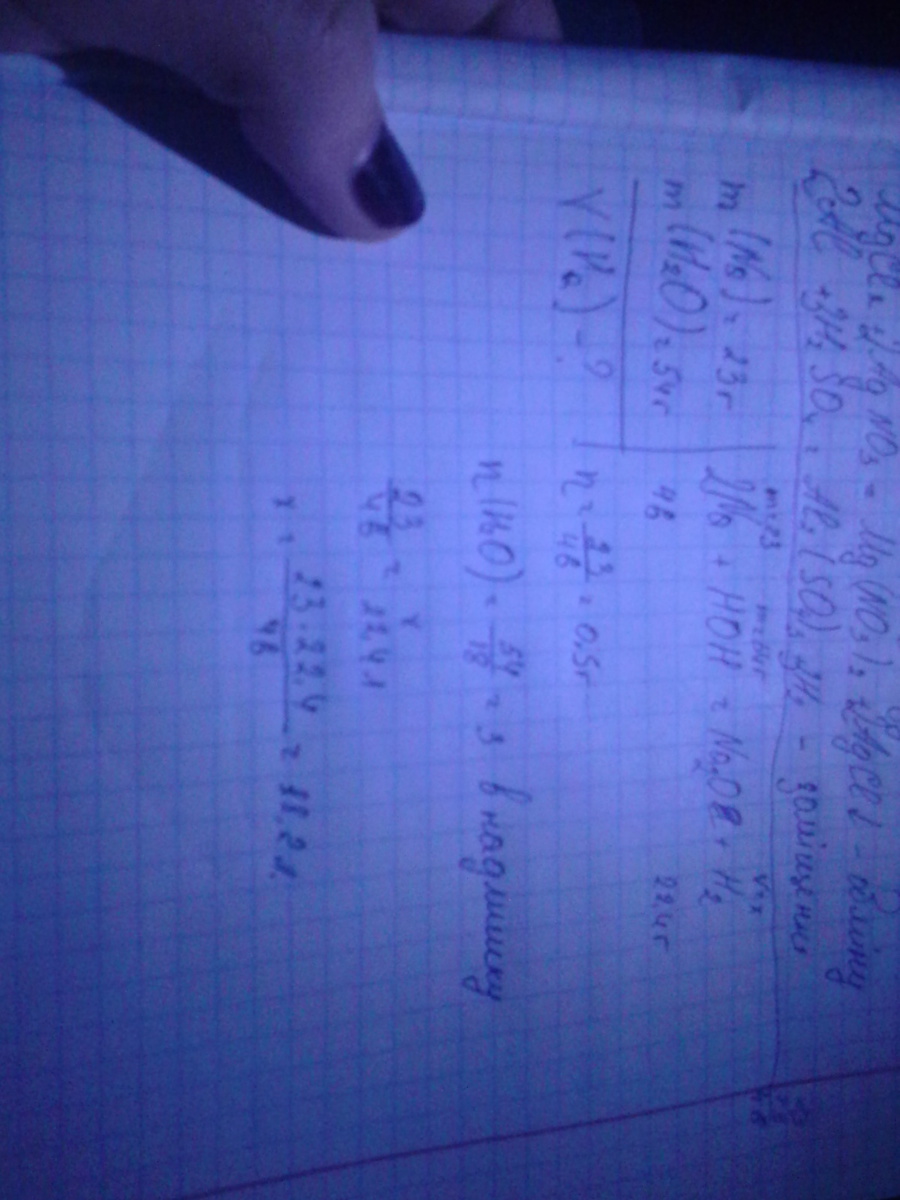 MgCl₂ + 2AgNO₃ = Mg(NO₃)₂ + 2AgCl↓ - обміну
2Al + 3H₂SO₄ = Al₂(SO₄)₃ + 3H₂ - заміщення
m(Na) = 23г
m(H₂O) = 54г
V(H₂) - ?
m=23 V=x
2Na + HOH = Na₂O + H₂
46 22,4г
n = 23/46 = 0.5г
n(H₂O) = 54/18 = 3 в надлишку
23/46 = x/22,4л
x = 23·22,4/46 = 11,2л